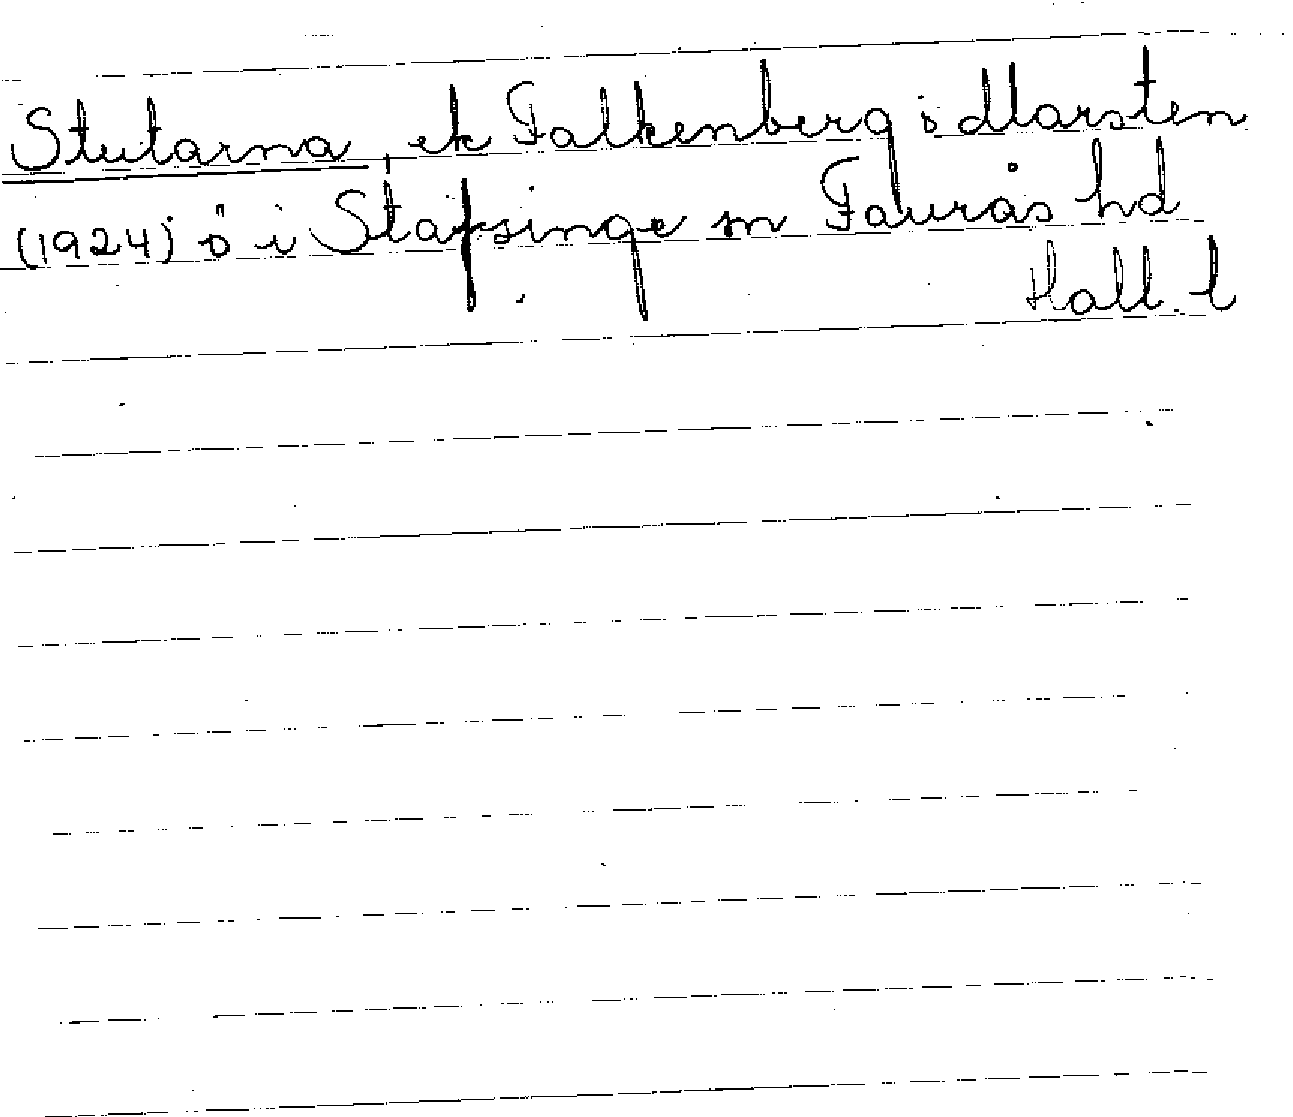 Stutarna, ek Falkenberg i Marsten
(1924) ö i Stafsinge sn Faurås hd
Hall. l